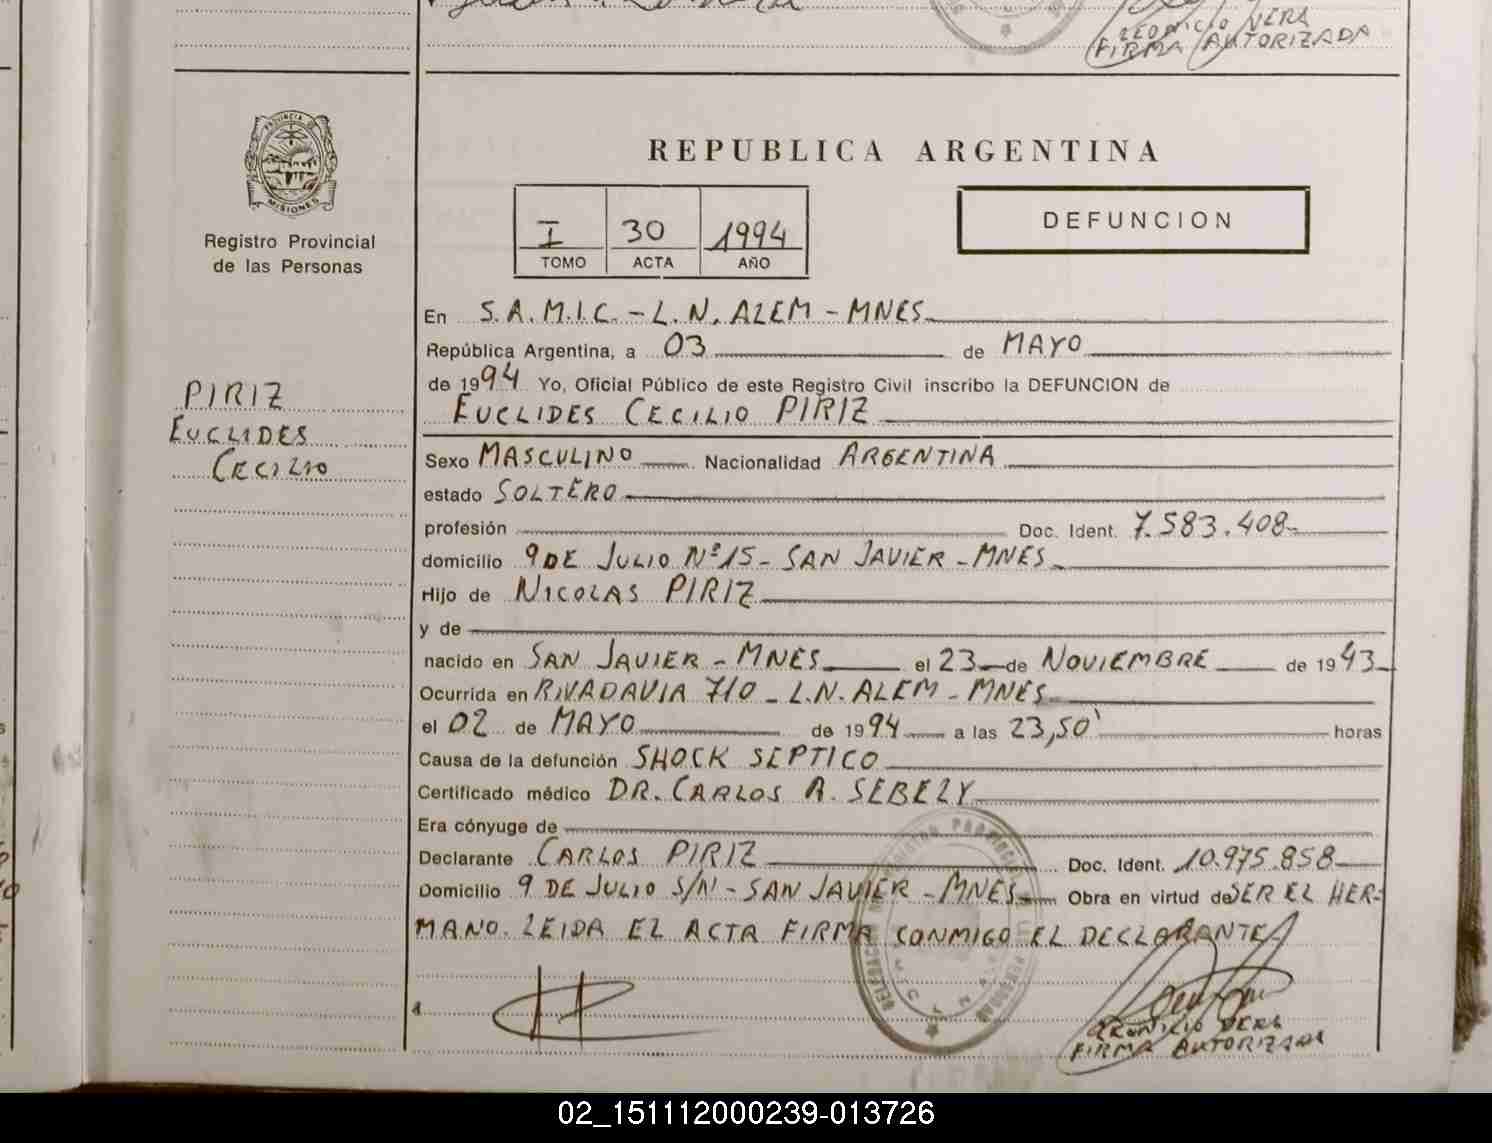 VERA
FIRMA AUTORIZADA
PROVINCIA DE
MISIONES
Registro Provincial
de las Personas
REPUBLICA ARGENTINA
I 30 1994
TOMO ACTA AÑO
DEFUNCION
PIRIZ
EUCLIDES
CECILIO
En S.A.M.I.C. - L.N. ALEM - MNES
República Argentina, a 03 de MAYO
de 1994 Yo, Oficial Público de este Registro Civil inscribo la DEFUNCION de
EUCLIDES CECILIO PIRIZ
Sexo MASCULINO Nacionalidad ARGENTINA
estado SOLTERO
profesión Doc. Ident. 7.583.408
domicilio 9 DE JULIO Nº 15 - SAN JAVIER - MNES
Hijo de NICOLAS PIRIZ
y de
nacido en SAN JAVIER - MNES el 23 de NOVIEMBRE de 1943
Ocurrida en RIVADAVIA 710 - L.N. ALEM - MNES
el 02 de MAYO de 1994 a las 23,50' horas
Causa de la defunción SHOCK SEPTICO
Certificado médico DR. CARLOS A. SEBELY
Era cónyuge de
Declarante CARLOS PIRIZ Doc. Ident. 10.975.858
Domicilio 9 DE JULIO S/N - SAN JAVIER - MNES Obra en virtud de SER EL HER-
MANO. LEIDA EL ACTA FIRMA CONMIGO EL DECLARANTE
VERA
FIRMA AUTORIZADA
02_151112000239-013726